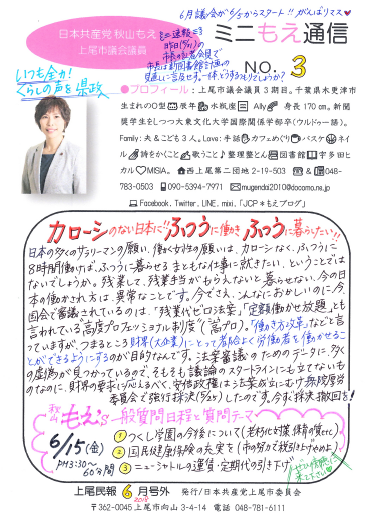 6月議会が6/5からスタート!! がんばリマス♥
日本共産党 秋山もえ
上尾市議会議員
ミニもえ通信
NO. 3
いつも全力!
くらしの声を県政
●プロフィール:上尾市議会議員3期目。千葉県木更津市
生まれのO型 辰年 水瓶座 Ally 身長170cm。新聞
奨学生をしつつ大東文化大学国際関係学部卒(ウルドゥー語)。
Family:夫&こども3人。Love:手話 カフェめぐり バスケ ネイ
ル 詩をかくこと 歌うこと 整理整とん 図書館 宇多田ヒ
カル MISIA。 西上尾第二団地2-19-503 &048-
783-0503 090-5394-7971 mugendai2010@docomo.ne.jp
Facebook、Twitter、LINE、mixi、「JCP*もえブログ」
カローシのない日本に"ふつうに働きふつうに暮らしたい!!
日本の多くのサラリーマンの願い、働く女性の願いは、カローシなく、ふつうに
8時間働けば、ふつうに暮らせるまともな仕事に就きたい、ということでは
ないでしょうか。残業して、残業手当がもらえないと暮らせない、今の日
本の働かされ方は、異常なことです。今でさえ、こんなにおかしいのに、今
国会で審議されているのは、"残業代ゼロ法案"、"定額働かせ放題"とも
言われている"高度プロフェッショナル制度"(高プロ)。「働き方改革」などと言
っていますが、つまるところ財界(大企業)にとって都合よく労働者を働かせるこ
とができるようにするのが目的なんです。法案審議のためのデータに多く
の虚偽が見つかっているので、そもそも議論のスタートラインにも立てないも
のなのに、財界の要求に応えるべく、安倍政権は法案成立にむけ衆院厚労
委員会で強行採決(5/25)したのです。今すぐ採決、撤回を!
秋山もえ's 一般質問日程と質問テーマ
6/15(金)
PM3:30~
60分間
①つくし学園の今後について(老朽化対策、保育の質etc)
②国民健康保険の充実を(市の努力で税引き下げめざして)
③ニューシャトルの運賃・定期代の引き下げ
上尾民報 6月号外 発行/日本共産党上尾市委員会
2018
〒362-0045 上尾市向山3-4-14 電話 048-781-6111